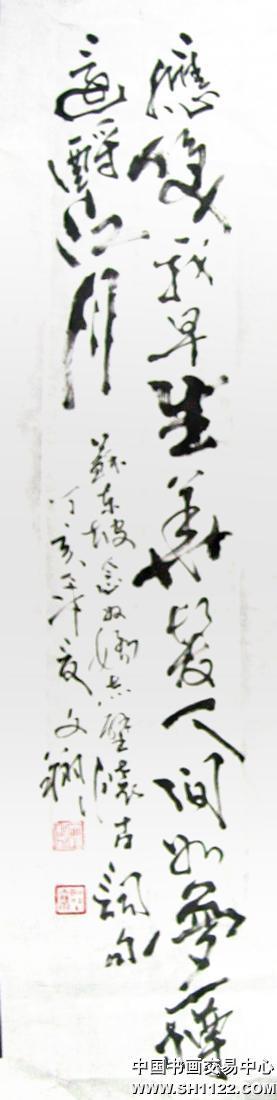 應笑我早生華髮人間如夢一樽
還酹江月
蘇東坡念奴嬌赤壁懷古詞句
丁亥年夏文翔
中国书画交易中心
www.SH1122.com